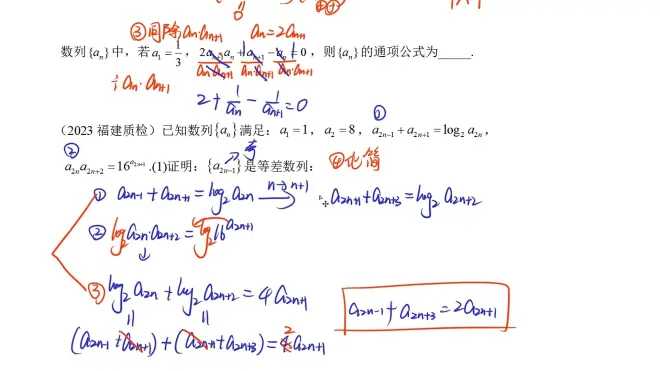 ③同除aₙ·aₙ₊₁ aₙ=2aₙ₊₁
数列{aₙ}中，若a₁=1/3，2aₙ₊₁aₙ+aₙ₊₁-aₙ=0，则{aₙ}的通项公式为_____.
aₙaₙ₊₁ aₙ·aₙ₊₁ aₙ·aₙ₊₁
÷aₙ·aₙ₊₁
2+1/aₙ-1/aₙ₊₁=0
①
（2023福建质检）已知数列{aₙ}满足：a₁=1，a₂=8，a₂ₙ₋₁+a₂ₙ₊₁=log₂a₂ₙ，
②
a₂ₙa₂ₙ₊₂=16^(a₂ₙ₊₁).(1)证明：{a₂ₙ₋₁}是等差数列；
④化简
① a₂ₙ₋₁+a₂ₙ₊₁=log₂a₂ₙ n→n+1 a₂ₙ₊₁+a₂ₙ₊₃=log₂a₂ₙ₊₂
② log₂a₂ₙ·a₂ₙ₊₂=log₂16^(a₂ₙ₊₁)
③ log₂a₂ₙ+log₂a₂ₙ₊₂=4a₂ₙ₊₁
a₂ₙ₋₁+a₂ₙ₊₃=2a₂ₙ₊₁
(a₂ₙ₋₁+a₂ₙ₊₁)+(a₂ₙ₊₁+a₂ₙ₊₃)=4 2 a₂ₙ₊₁